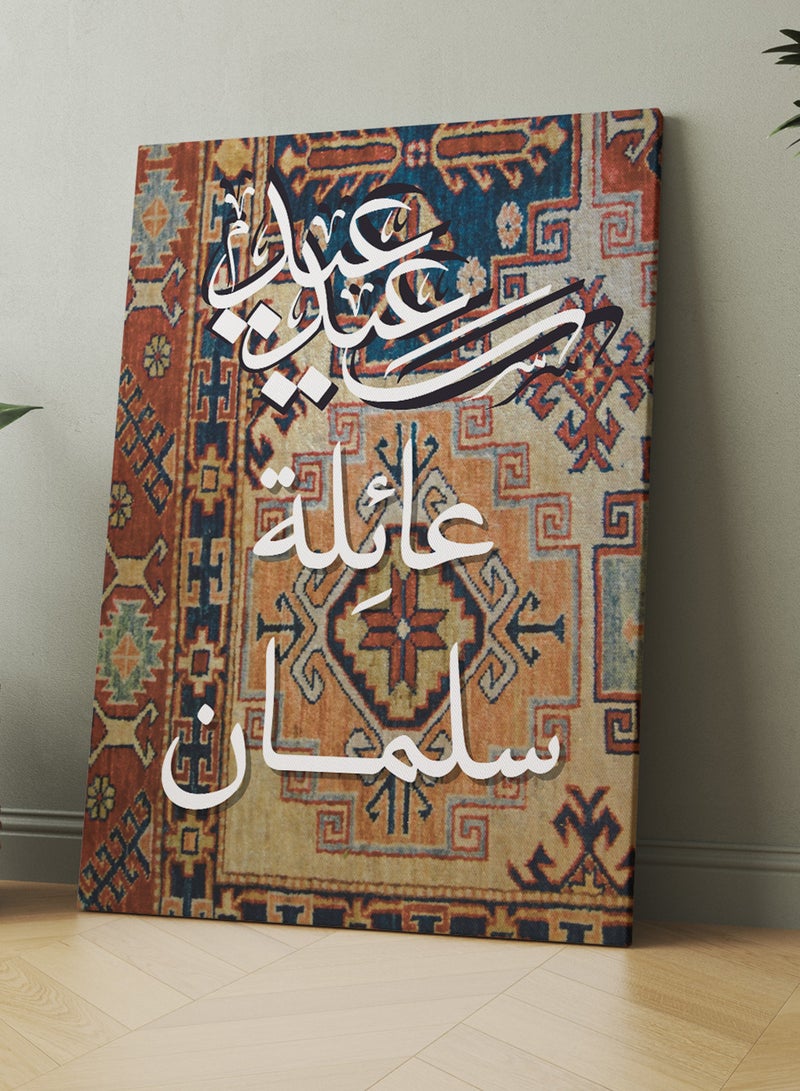 عيد سعيد
عائِلة
سلمـان